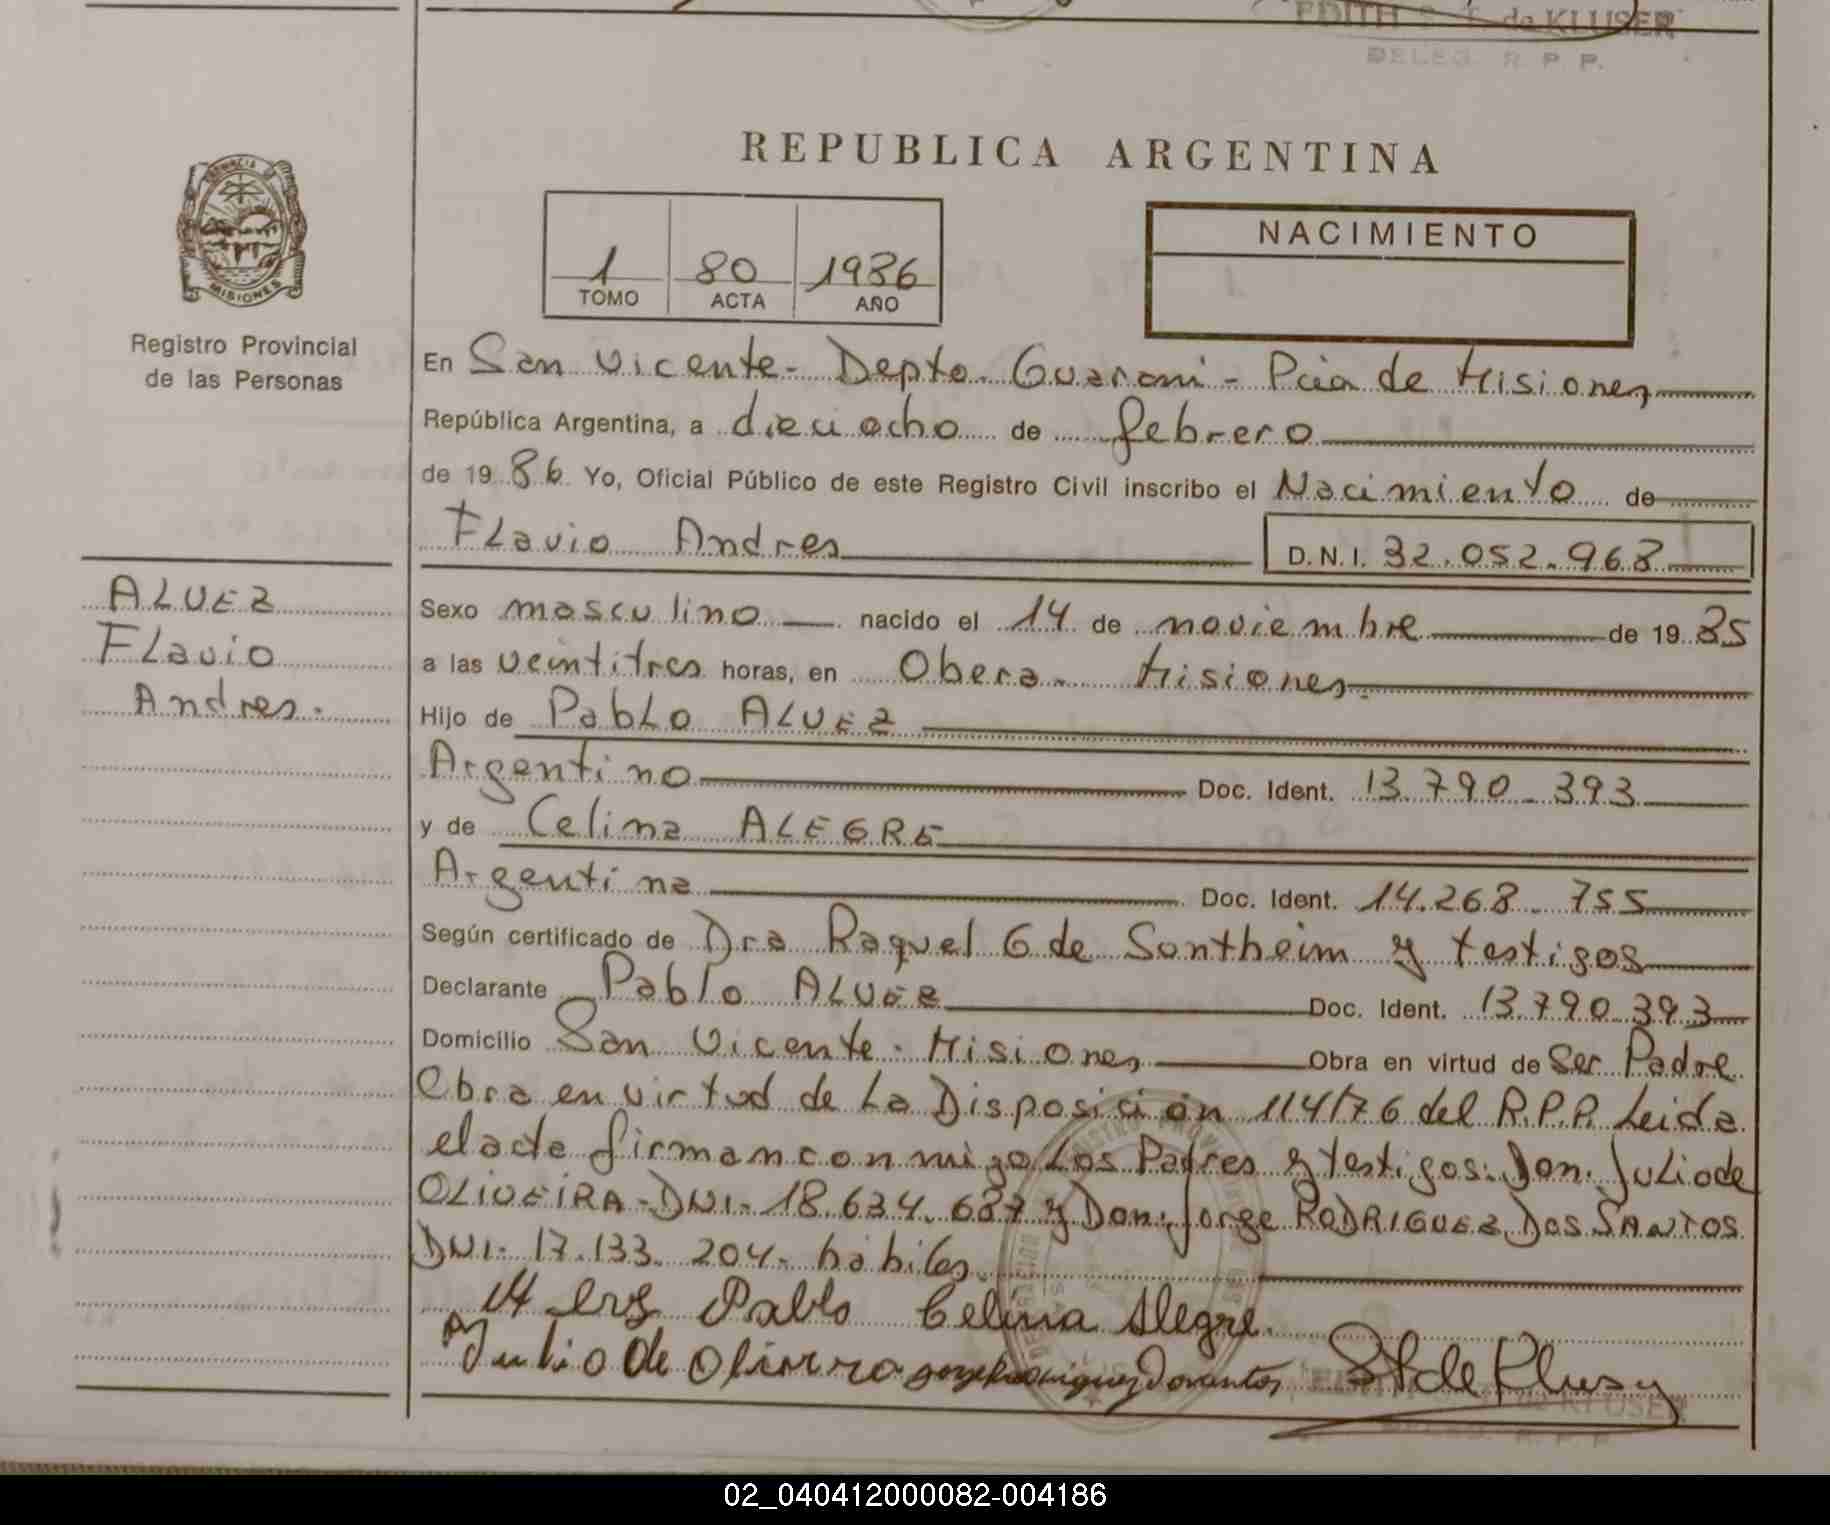 EDITH S. T. de KLUSER
DELEG. R. P. P.
REPUBLICA ARGENTINA
PROVINCIA DE
MISIONES
Registro Provincial
de las Personas
1 80 1986
TOMO ACTA AÑO
NACIMIENTO
En San Vicente - Depto. Guarani - Pcia de Misiones
República Argentina, a dieciocho de febrero
de 1986 Yo, Oficial Público de este Registro Civil inscribo el Nacimiento de
Flavio Andres D.N.I. 32.052.968
ALVEZ
Flavio
Andres.
Sexo masculino nacido el 14 de noviembre de 1985
a las veintitres horas, en Obera - Misiones.
Hijo de Pablo ALVEZ
Argentino Doc. Ident. 13.790.393
y de Celina ALEGRE
Argentina Doc. Ident. 14.268.755
Según certificado de Dra Raquel G de Sontheim y testigos
Declarante Pablo ALVEZ Doc. Ident. 13.790.393
Domicilio San Vicente - Misiones Obra en virtud de Ser Padre
Obra en virtud de La Disposición 114/76 del R.P.P. Leida
el acta firman conmigo Los Padres y testigos: Don. Julio de
OLIVEIRA - DNI - 18.634.687 y Don: Jorge RODRIGUEZ DOS SANTOS
DNI - 17.133.204 - hábiles.
Pablo Celina Alegre.
Julio de
EDITH de KLUSER
DELEG. R. P. P.
02_040412000082-004186